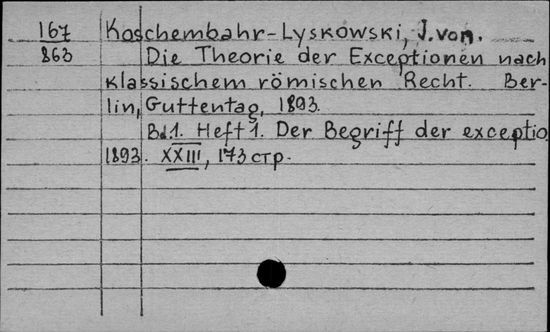 167 Koschembahr-Lyskowski, J. von.
863 Die Theorie der Exceptionen nach
klassischem römischen Recht. Ber-
lin, Guttentag, 1893.
Bd 1. Heft 1. Der Begriff der exceptio
1893. XXIII, 173 стр.